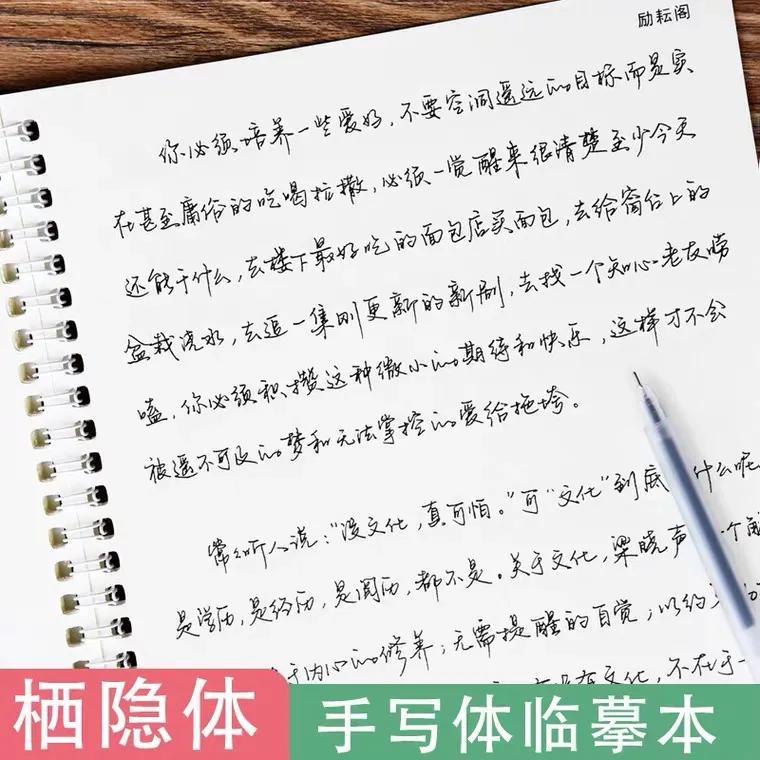 励耘阁
你必须培养一些爱好,不要空洞遥远的目标而是实
在甚至庸俗的吃喝拉撒,必须一觉醒来很清楚至少今天
还能干什么,去楼下最好吃的面包店买面包,去给窗台上的
盆栽浇水,去追一集刚更新的新剧,去找一个知心老友唠
嗑,你必须积攒这种微小的期待和快乐,这样才不会
被遥不可及的梦和无法掌控的爱给拖垮。
常听人说:“没文化,真可怕。”可“文化”到底 什么呢
是学历,是经历,是阅历,都不是。关于文化,梁晓声 一个解
内心的修养;无需提醒的自觉;以约
没有文化,不在于一
栖隐体
手写体临摹本